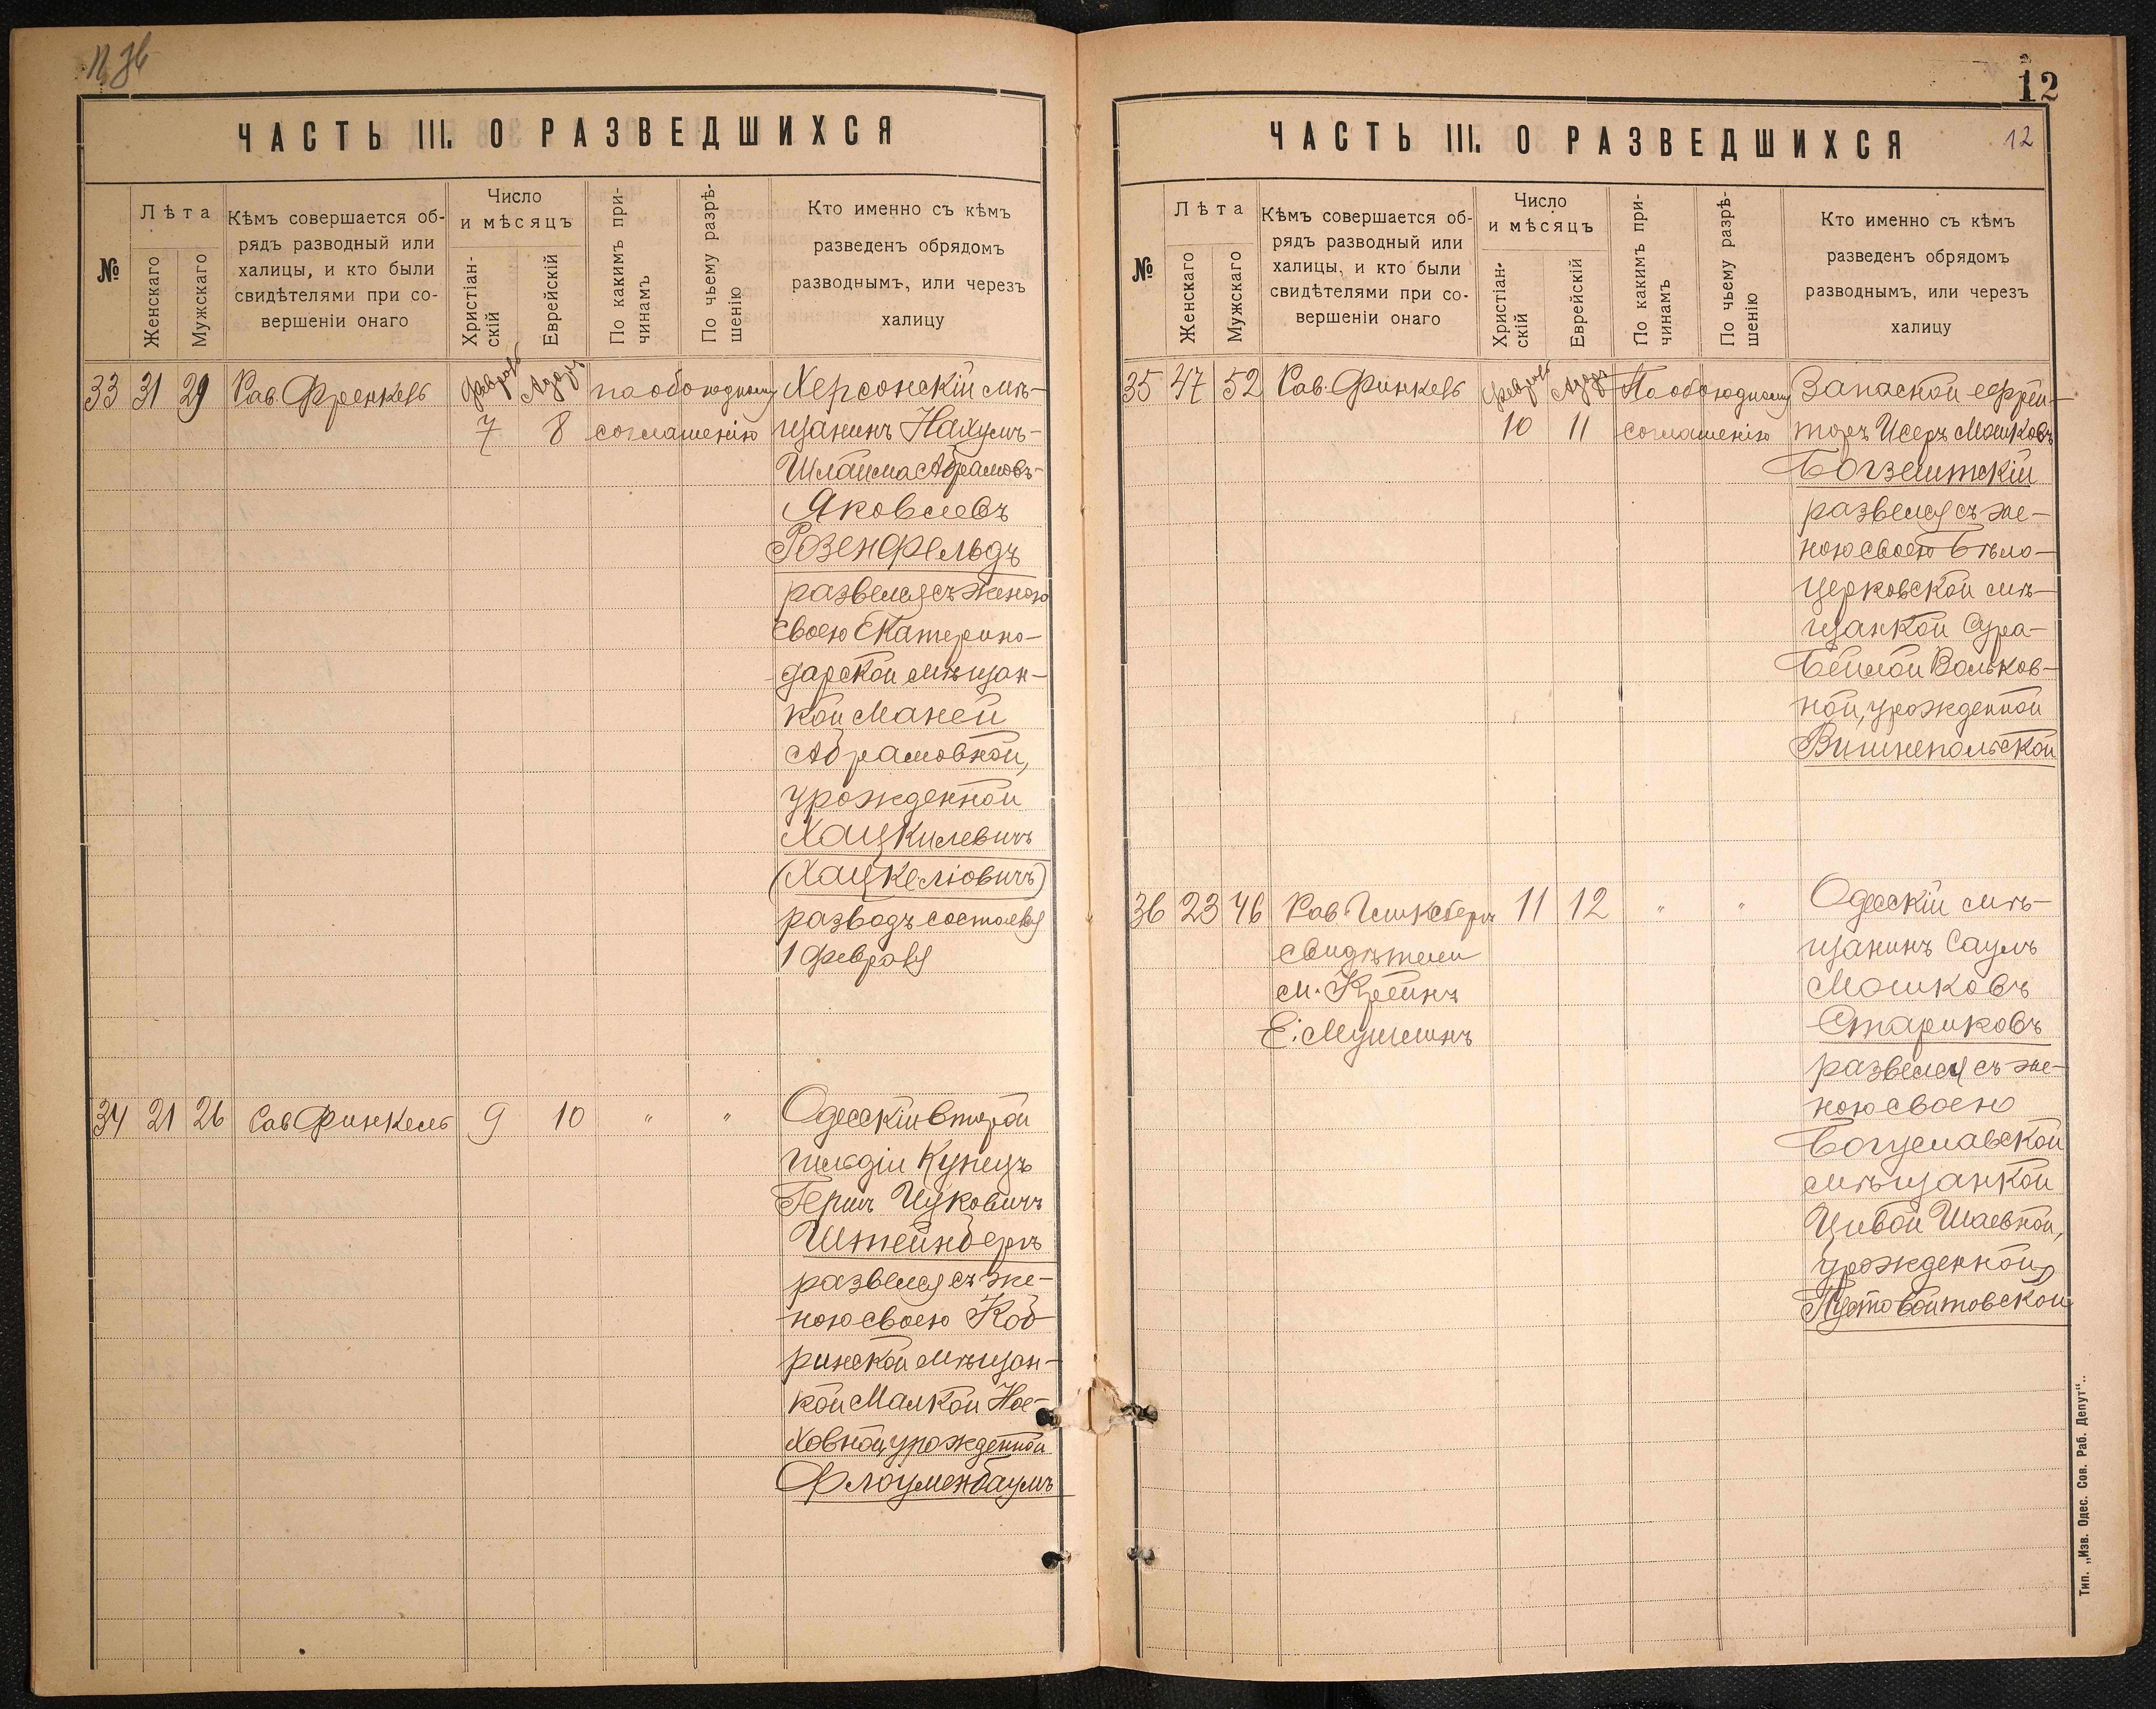 ЧАСТЬ III. О РАЗВЕДШИХСЯ
№
Лѣта
Женскаго
Мужскаго
Кѣмъ совершается об-
рядъ разводный или
халицы, и кто были
свидѣтелями при со-
вершеніи онаго
Число
и мѣсяцъ
Христіан-
скій
Еврейскій
По какимъ при-
чинамъ
По чьему разрѣ-
шенію
Кто именно съ кѣмъ
разведенъ обрядомъ
разводнымъ, или черезъ
халицу
33 31 29 Рав. Френкель Адаръ по обоюдному Херсонскій мѣ-
7 8 соглашенію щанинъ Нахумъ-
Шлойма Абрамовъ-
Яковлевъ
Розенфельдъ
развелся съ женою
своею Екатерино-
дарской мѣщан-
кой Маней
Абрамовной,
урожденной
Хацкилевичъ
(Хацкеліовичъ)
разводъ состоялся
1 февраля
34 21 26 Рав Финкель 9 10 " " Одесскій второй
гильдіи купецъ
Герш Ицковичъ
Штейнбергъ
развелся съ же-
ною своею Коб-
ринской мѣщан-
кой Малкой Ное-
ховной, урожденной
Флоуменбаумъ
12
ЧАСТЬ III. О РАЗВЕДШИХСЯ 12
№
Лѣта
Женскаго
Мужскаго
Кѣмъ совершается об-
рядъ разводный или
халицы, и кто были
свидѣтелями при со-
вершеніи онаго
Число
и мѣсяцъ
Христіан-
скій
Еврейскій
По какимъ при-
чинамъ
По чьему разрѣ-
шенію
Кто именно съ кѣмъ
разведенъ обрядомъ
разводнымъ, или черезъ
халицу
35 47 52 Рав. Финкель Адаръ По обоюдному Запасной ефрей-
10 11 соглашенію торъ Исеръ Мошковъ
Богзештскій
развелся съ же-
ною своею Бѣло-
церковской мѣ-
щанкой Сура-
Бейлой Вольков-
ной, урожденной
Вишнепольской
36 23 46 Рав. 11 12 " " Одесскій мѣ-
свидѣтели щанинъ Саулъ
М. Крейнъ Мошковъ
Е. Стариковъ
развелся съ же-
ною своею
Богуславской
мѣщанкой
Цивой Шаевной,
урожденной
Пустовойтовской
Тип. „Изв. Одес. Сов. Раб. Депут“..